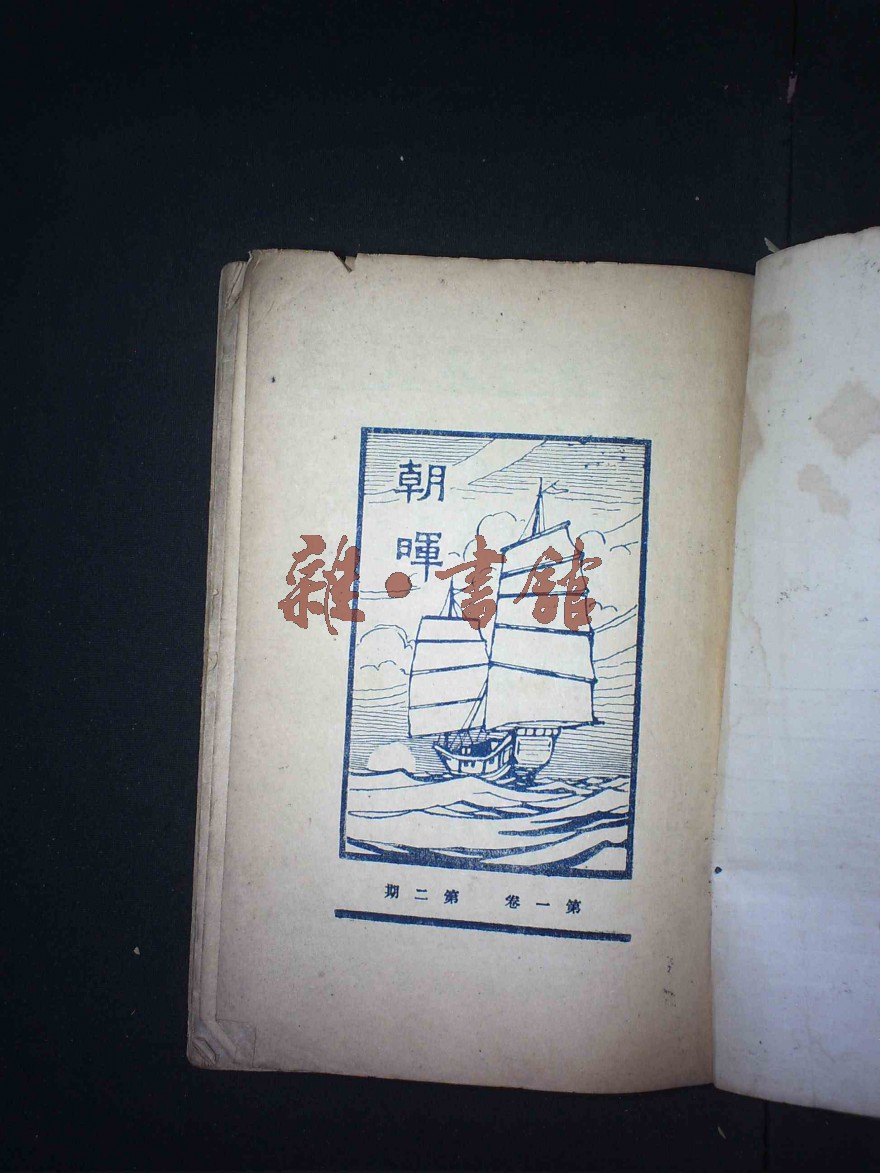 朝暉
雜·書館
第一卷 第二期